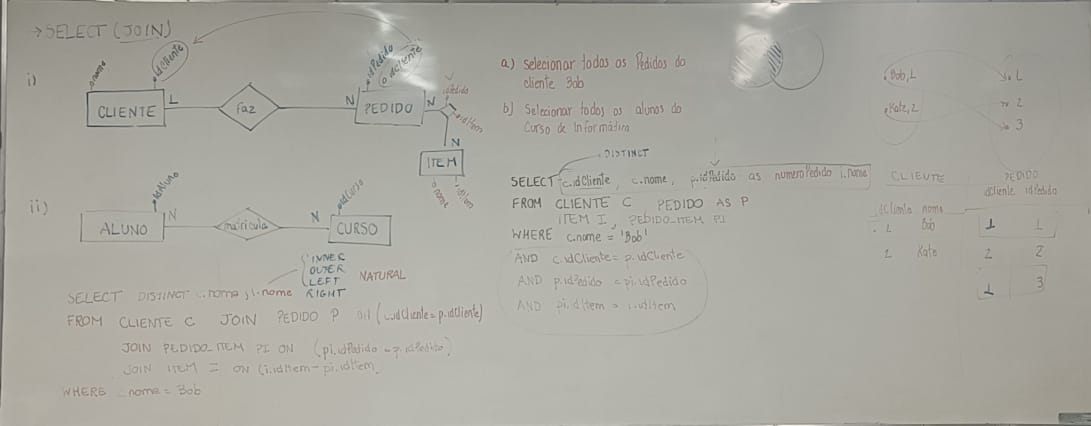 → SELECT (JOIN)
i)
nome
idCliente
CLIENTE
1
faz
N
PEDIDO
idPedido
idCliente
N
idPedido
idItem
N
ITEM
nome
idItem
ii)
idAluno
ALUNO
N
matricula
N
idCurso
CURSO
INNER
OUTER
LEFT
RIGHT
NATURAL
SELECT DISTINCT c.nome, i.nome
FROM CLIENTE C JOIN PEDIDO P ON (c.idCliente = p.idCliente)
JOIN PEDIDO_ITEM PI ON (pi.idPedido = p.idPedido)
JOIN ITEM I ON (i.idItem = pi.idItem
WHERE c.nome = Bob
a) Selecionar todos os Pedidos do
cliente Bob
b) Selecionar todos os alunos do
Curso de Informática
DISTINCT
SELECT c.idCliente, c.nome, p.idPedido as numeroPedido i.nome
FROM CLIENTE C PEDIDO AS P
ITEM I, PEDIDO_ITEM PI
WHERE c.nome = 'Bob'
AND c.idCliente = p.idCliente
AND p.idPedido = pi.idPedido
AND pi.idItem = i.idItem
Bob, 1
Kate, 2
1
2
3
CLIENTE
idCliente nome
1 Bob
2 Kate
PEDIDO
idCliente idPedido
1 1
2 2
1 3